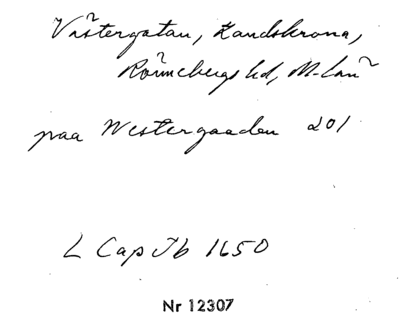 Västergatan, Landskrona,
Rönnebergs hd, M-län
paa Westergaaden 201
L Cap Jb 1650
Nr 12307